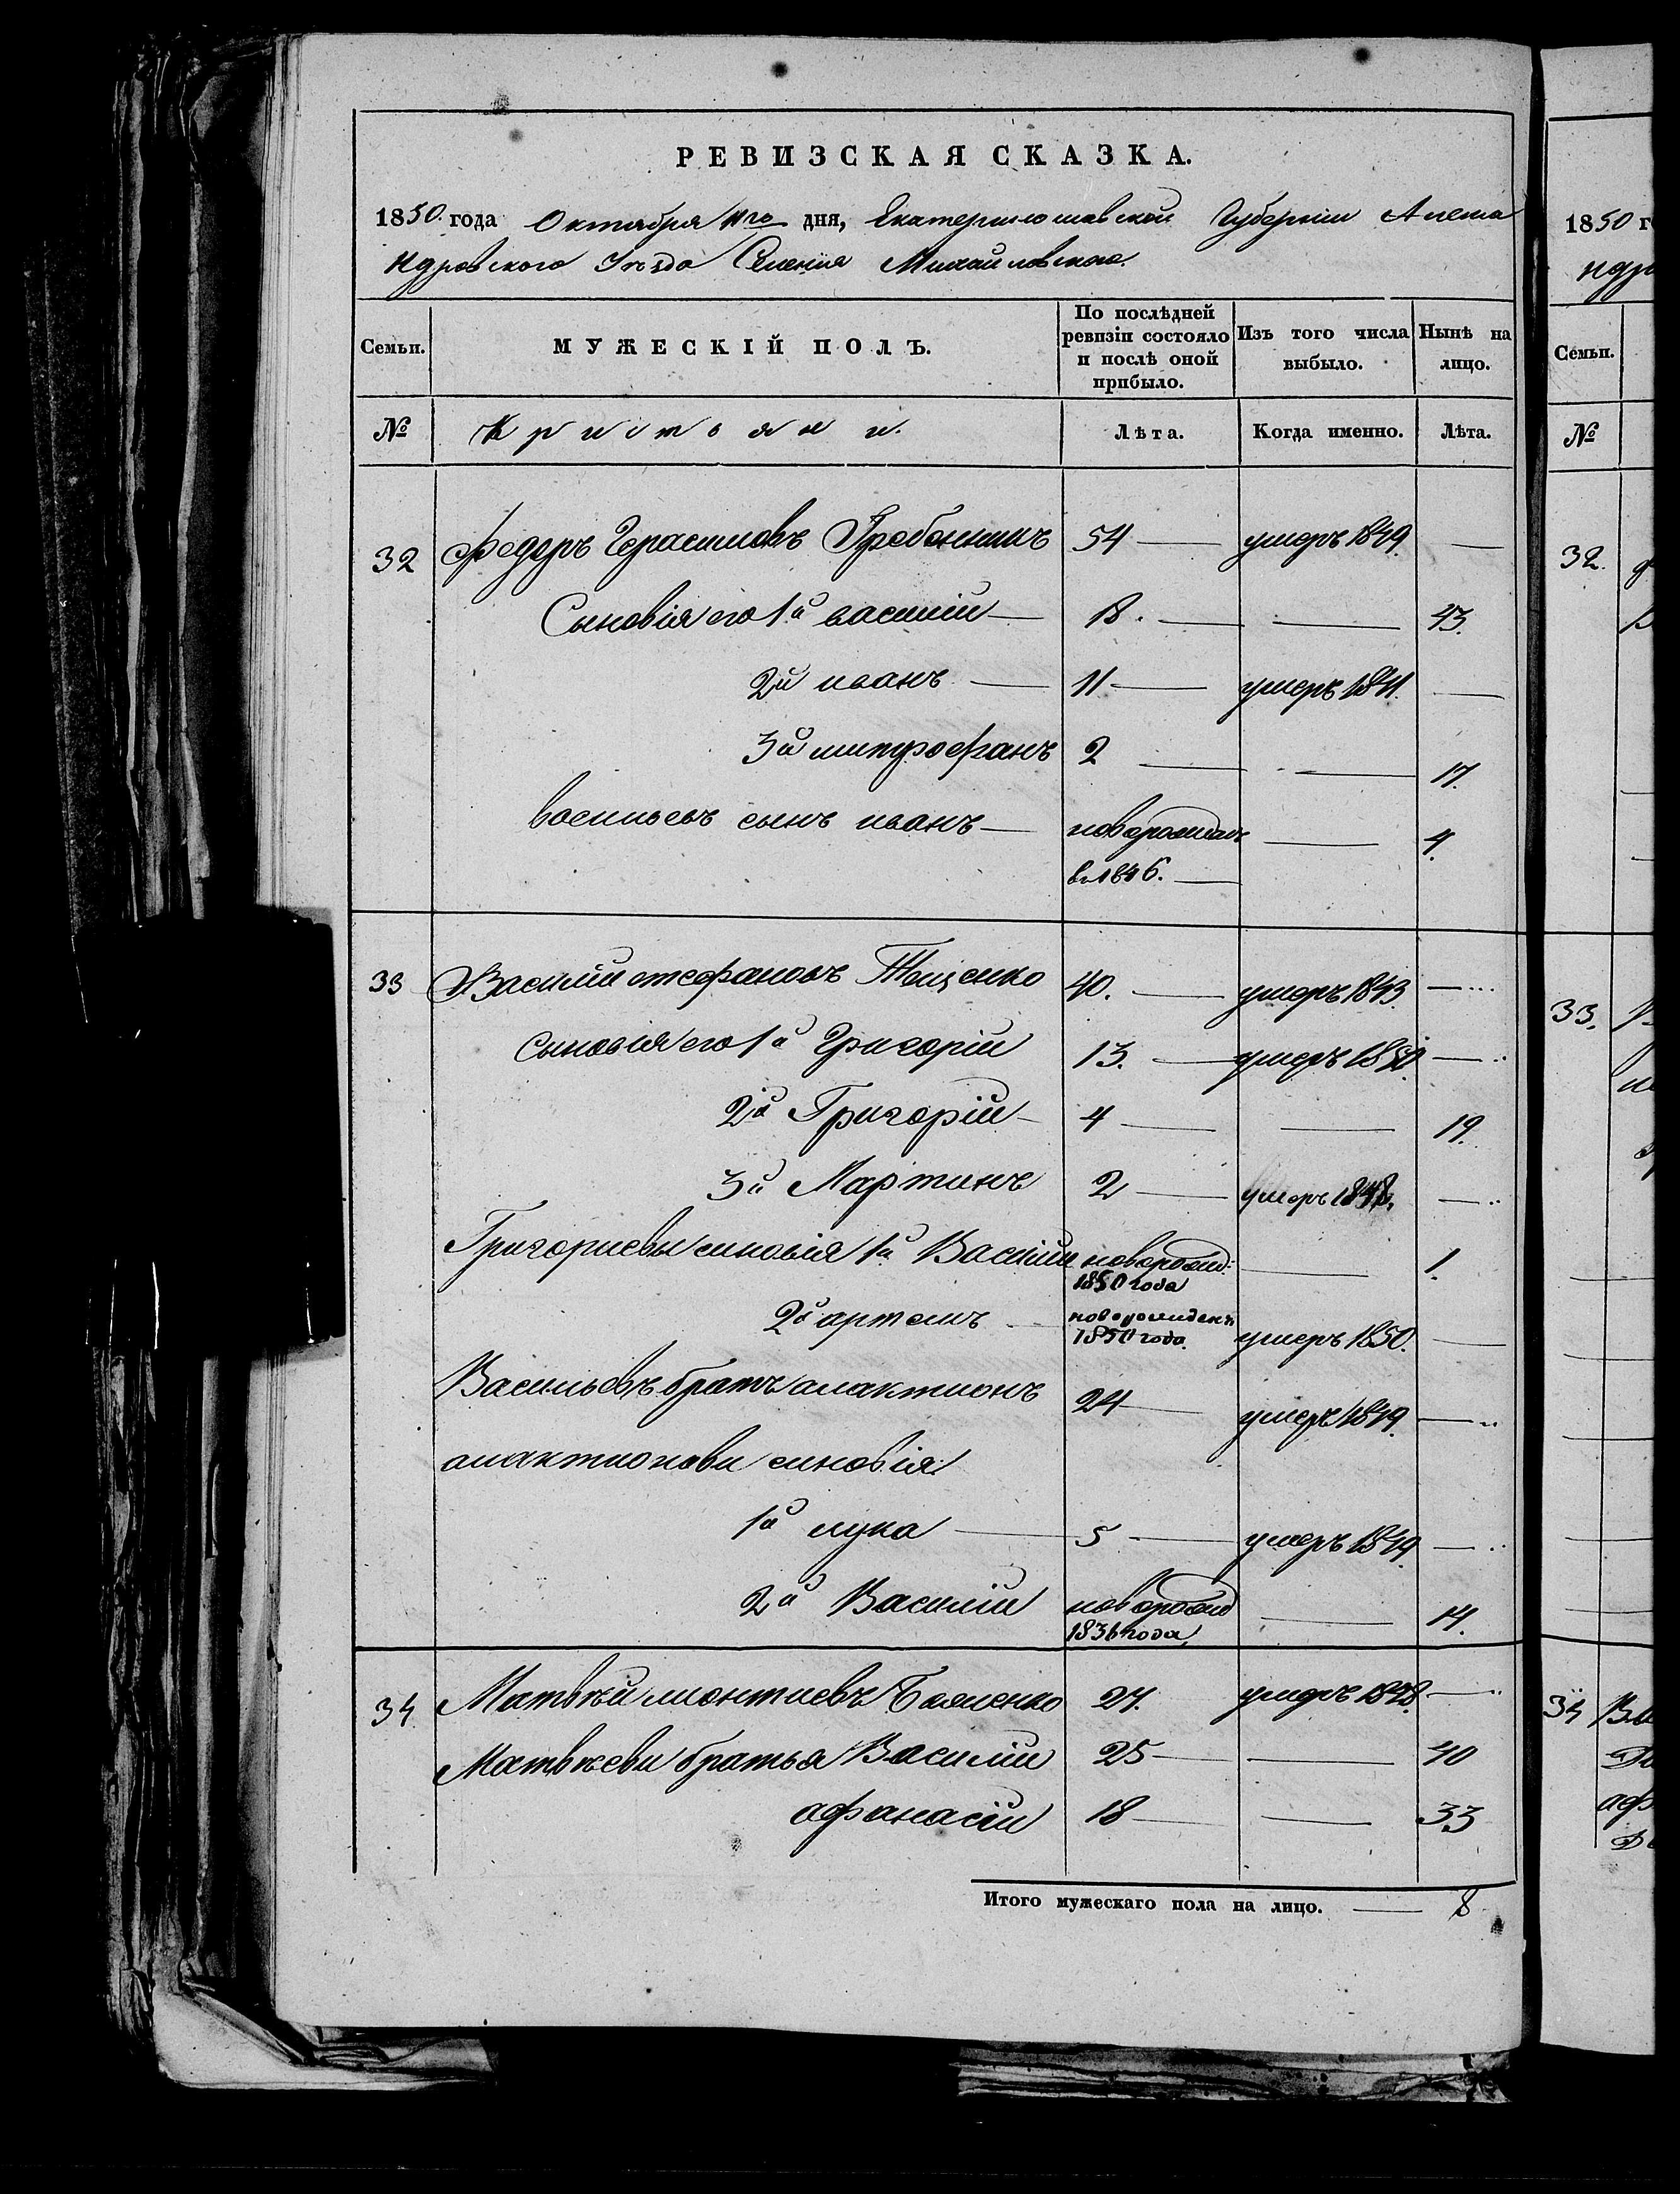 РЕВИЗСКАЯ СКАЗКА.
1850 года Октября 11го дня, Екатеринославской Губерніи Алекса
ндровского Уѣзда Селенія Михайловского.
Семьи. МУЖЕСКІЙ ПОЛЪ. По послѣдней ревизіи состояло и послѣ оной прибыло. Изъ того числа выбыло. Нынѣ на лицо.
№ Кристьяни. Лѣта. Когда именно. Лѣта.
32 Федоръ Герасимовъ Гребенникъ 54 — умеръ 1849. —
Сыновія его 1й василіи — 18. — — 43.
2й иванъ — 11 — умеръ 1841. —
3й митрофанъ 2 — — 17.
васильевъ сынъ иванъ — новорожденъ — 4.
въ 1846. —
33 Василіи стефановъ Тищенко 40. — умеръ 1843. —
сыновія его 1й Григоріи 13. — умеръ 1850. —
2й Григоріи — 4 — — 19.
3й Мартинъ 2 — умеръ 1848. —
Григориевы синовія 1й Василіи новорожд: — 1.
1850 года
2й артемъ — новорожденъ
1850 года. умеръ 1850. —
Васильевъ братъ алактионъ 24 — умеръ 1849. —
алактионови синовія
1й лука — 5 — умеръ 1849. —
2й Василіи новорожд — 14.
1836 года,
34 Матвѣй лионтиевъ 27. умеръ 1848. —
Матвѣеви братья Василіи 25 — — 40
афанасіи 18 — — 33
Итого мужескаго пола на лицо. — 8
1850 г
ндр
Семьи.
№
32.
33.
34
аф